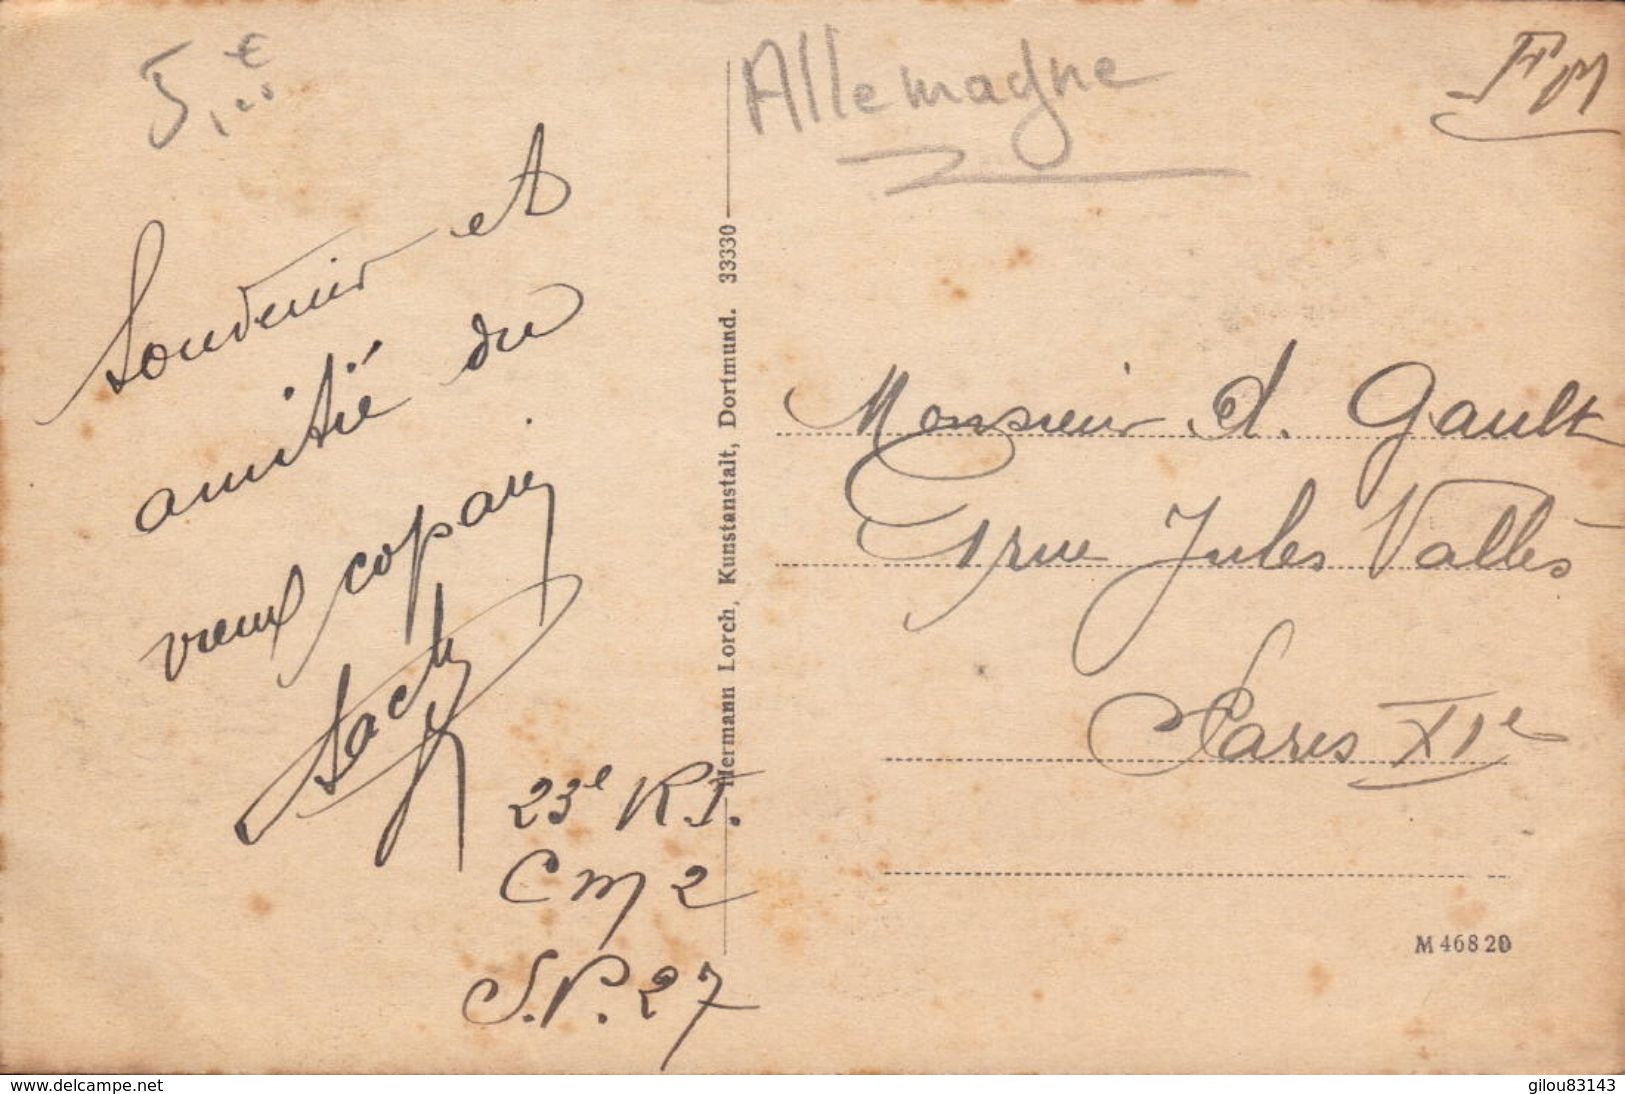 5,00 €
Souvenir et
amitié du
vieux copain
23e R.I.
Cm 2
S.P. 27
Hermann Lorch, Kunstanstalt, Dortmund. 33330
Allemagne
FM
Monsieur A. Gault
1 rue Jules Vallès
Paris XIe
M 46820
www.delcampe.net
gilou83143